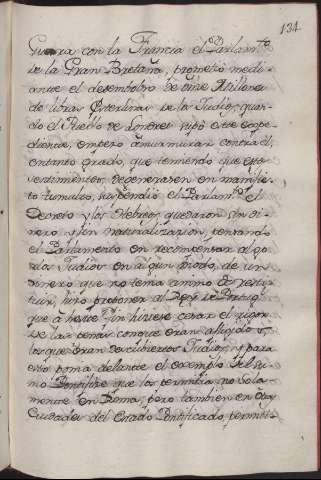 134
Guerra con la Francia el Parlamto
de la Gran Bretaña, prometio medi-
ante el desembolso de onze Millones
de libras esterlinas de los Judios, quan-
do el Pueblo de Londres supo este expe-
diente, empezó a murmurar contra el,
en tanto grado, que temiendo que estos
sentimientos degenerasen en manifies-
to tumulto, suspendió el Parlamto el
Decreto y los Hebreos quedaron sin di-
nero y sin naturalizacion, pensando
el Parlamento en recompensar al go
á los Judios en algun modo, de un
dinero que no tenia animo de resti-
tuir, hizo proponer al Rey de Portugl
que á hese fin hiciese cesar el rigor
de las penas con que eran afligidos
los que eran descubiertos Judios, y para
esto ponia delante el exemplo del su-
mo Pontifice que los permitia no sola-
mente en Roma, pero tambien en otras
Ciudades del Estado Pontificado, permiti-